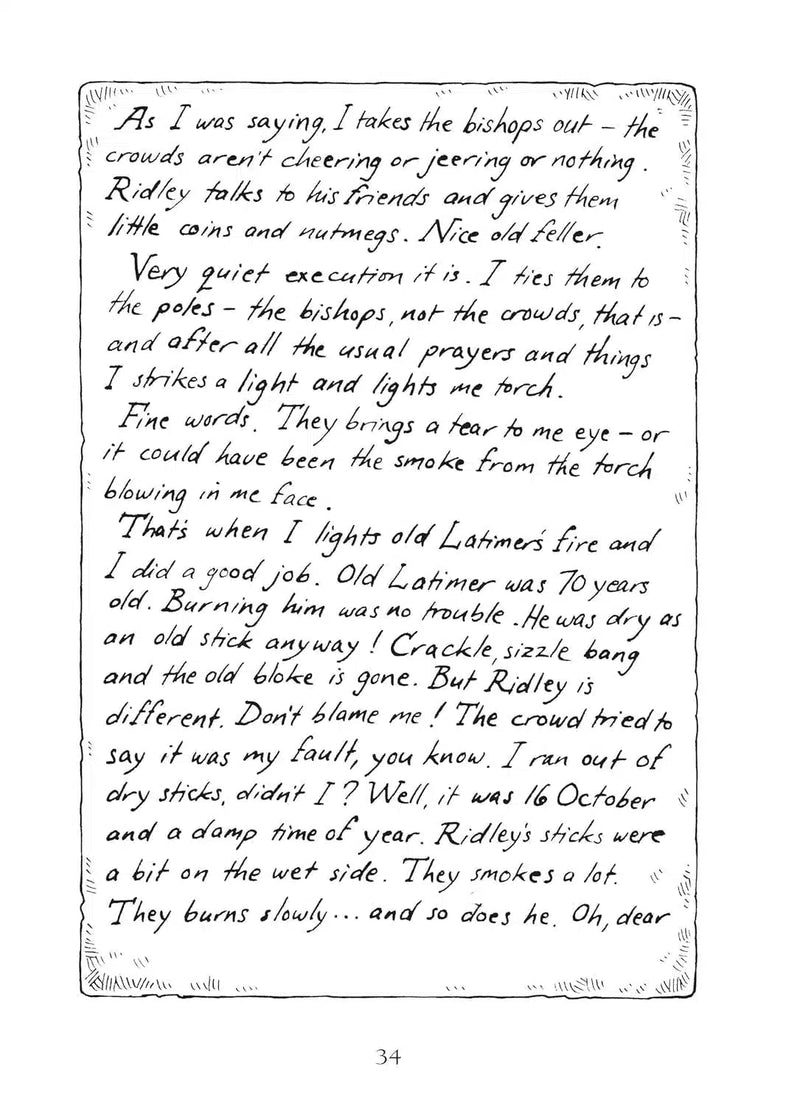 As I was saying, I takes the bishops out – the
crowds aren't cheering or jeering or nothing.
Ridley talks to his friends and gives them
little coins and nutmegs. Nice old feller.
Very quiet execution it is. I ties them to
the poles – the bishops, not the crowds, that is –
and after all the usual prayers and things
I strikes a light and lights me torch.
Fine words. They brings a tear to me eye – or
it could have been the smoke from the torch
blowing in me face.
That's when I lights old Latimer's fire and
I did a good job. Old Latimer was 70 years
old. Burning him was no trouble. He was dry as
an old stick anyway! Crackle, sizzle bang
and the old bloke is gone. But Ridley is
different. Don't blame me! The crowd tried to
say it was my fault, you know. I ran out of
dry sticks, didn't I? Well, it was 16 October
and a damp time of year. Ridley's sticks were
a bit on the wet side. They smokes a lot.
They burns slowly... and so does he. Oh, dear
34